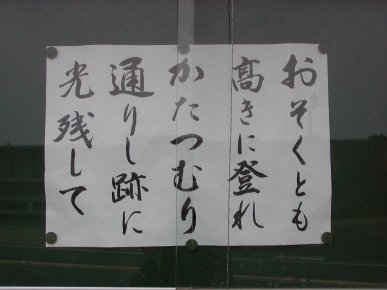 おそくとも
高きに登れ
かたつむり
通りし跡に
光残して